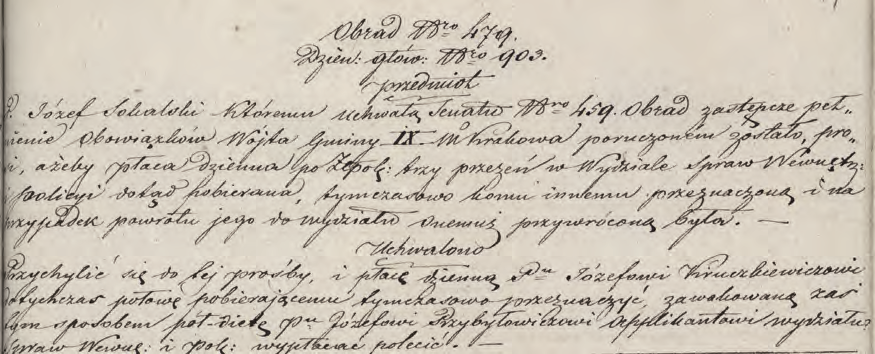 Obrad Nro 479.
Dzien: główn: Nro 903.
przedmiot
P. Józef Sokalski któremu uchwałą Senatu Nro 459. Obrad zastępcze peł-
nienie obowiązków Wójta Gminy IX. M. Krakowa poruczonem zostało, pro-
si, ażeby płaca dzienna po Złpol: trzy przezeń w Wydziale Spraw Wewnętrz:
i Policyi dotąd pobierana, tymczasowo komu innemu przeznaczoną i na
przypadek powrotu jego do wydziału onemuż przywróconą była. —
Uchwalono
Przychylić się do tej prośby, i płacę dzienną Pnu Józefowi Kruczkiewiczowi
dotychczas połowę pobierającemu tymczasowo przeznaczyć, zawakowaną zaś
tym sposobem pół-dietę Pnu Józefowi Przybyłowiczowi Applikantowi wydziału
Spraw Wewnę: i Pol: wypłacać polecić. —